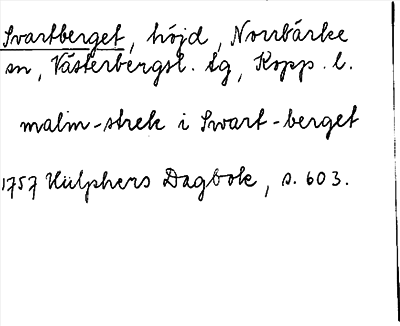 Svartberget, höjd, Norrbärke
sn, Västerbergsl. tg, Kopp. l.
malm-strek i Swart-berget
1757 Hülphers Dagbok, s. 603.